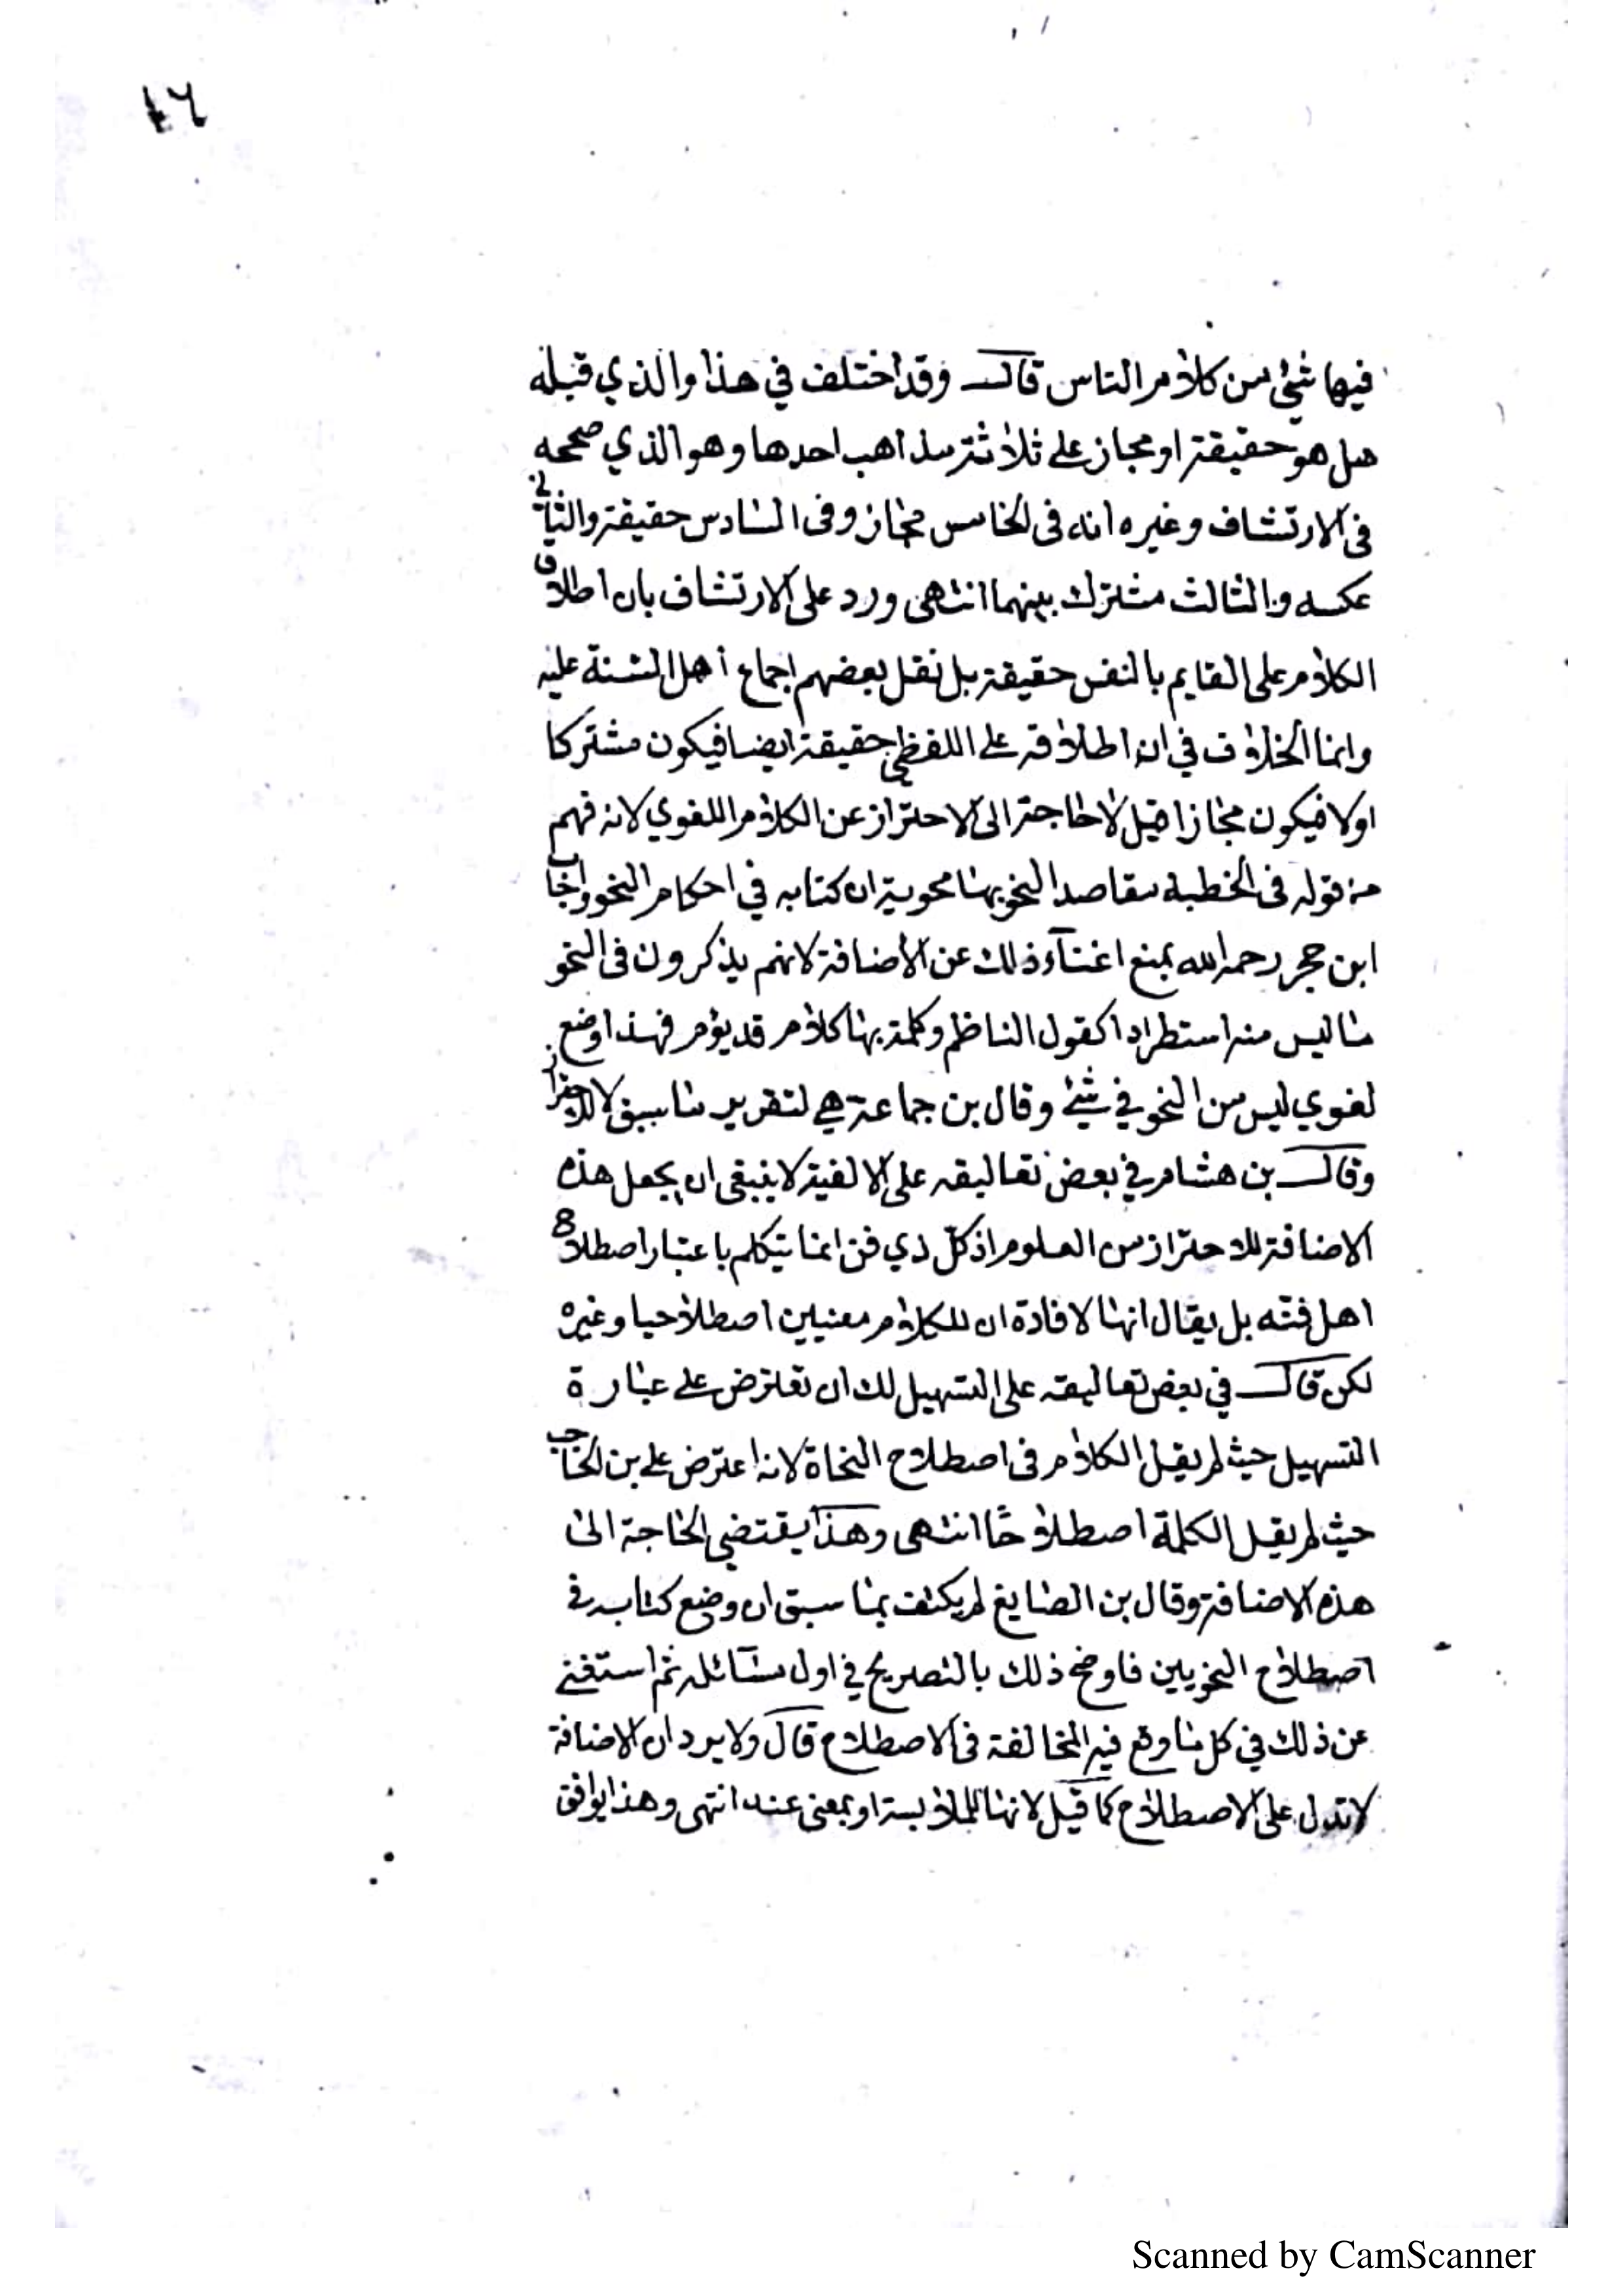 ١٦
فيها شيء من كلام الناس قال وقد اختلف في هذا والذي قبله
هل هو حقيقة او مجاز على ثلاثة مذاهب احدها وهو الذي صححه
فى الارتشاف وغيره انه فى الخامس مجاز وفى السادس حقيقة والثاني
عكسه والثالث مشترك بينهما انتهى ورد على الارتشاف بان اطلاق
الكلام على القايم بالنفس حقيقة بل نقل بعضهم اجماع أهل السنة عليه
وانما الخلاف في ان اطلاقه على اللفظي حقيقة ايضا فيكون مشتركا
اولا فيكون مجازا قيل لا حاجة الى الاحتراز عن الكلام اللغوي لانه فهم
من قوله فى الخطبة مقاصد النحو بها محوية ان كتابه في احكام النحو واجاب
ابن حجر رحمه الله بمنع اغناء ذلك عن الاضافة لانهم يذكرون فى النحو
ما ليس منه استطرادا كقول الناظم وكلمة بها كلام قد يؤم فهذا وضع
لغوي ليس من النحو في شئ وقال بن جماعة هي لتقرير ما سبق لا للاحتراز
وقال بن هشام في بعض تعاليقه على الالفية لا ينبغى ان يجعل هذه
الاضافة للاحتراز من العلوم اذ كل ذي فن انما يتكلم باعتبار اصطلاح
اهل فنه بل يقال انها لافادة ان للكلام معنيين اصطلاحيا وغيره
لكن قال في بعض تعاليقه على التسهيل لك ان تعترض على عبارة
التسهيل حيث لم يقل الكلام فى اصطلاح النحاة لانه اعترض على بن الحاجب
حيث لم يقل الكلمة اصطلاحًا انتهى وهذا يقتضي الحاجة الى
هذه الاضافة وقال بن الصايغ لم يكتف بما سبق ان وضع كتابه في
اصطلاح النحويين فاوضح ذلك بالتصريح في اول مسآئله ثم استغنى
عن ذلك في كل ما وقع فيه المخالفة فى الاصطلاح قال ولا يرد ان الاضافة
لا تدل على الاصطلاح كما قيل لانها للملابسة او بمعنى عند انتهى وهذا يوافق
Scanned by CamScanner